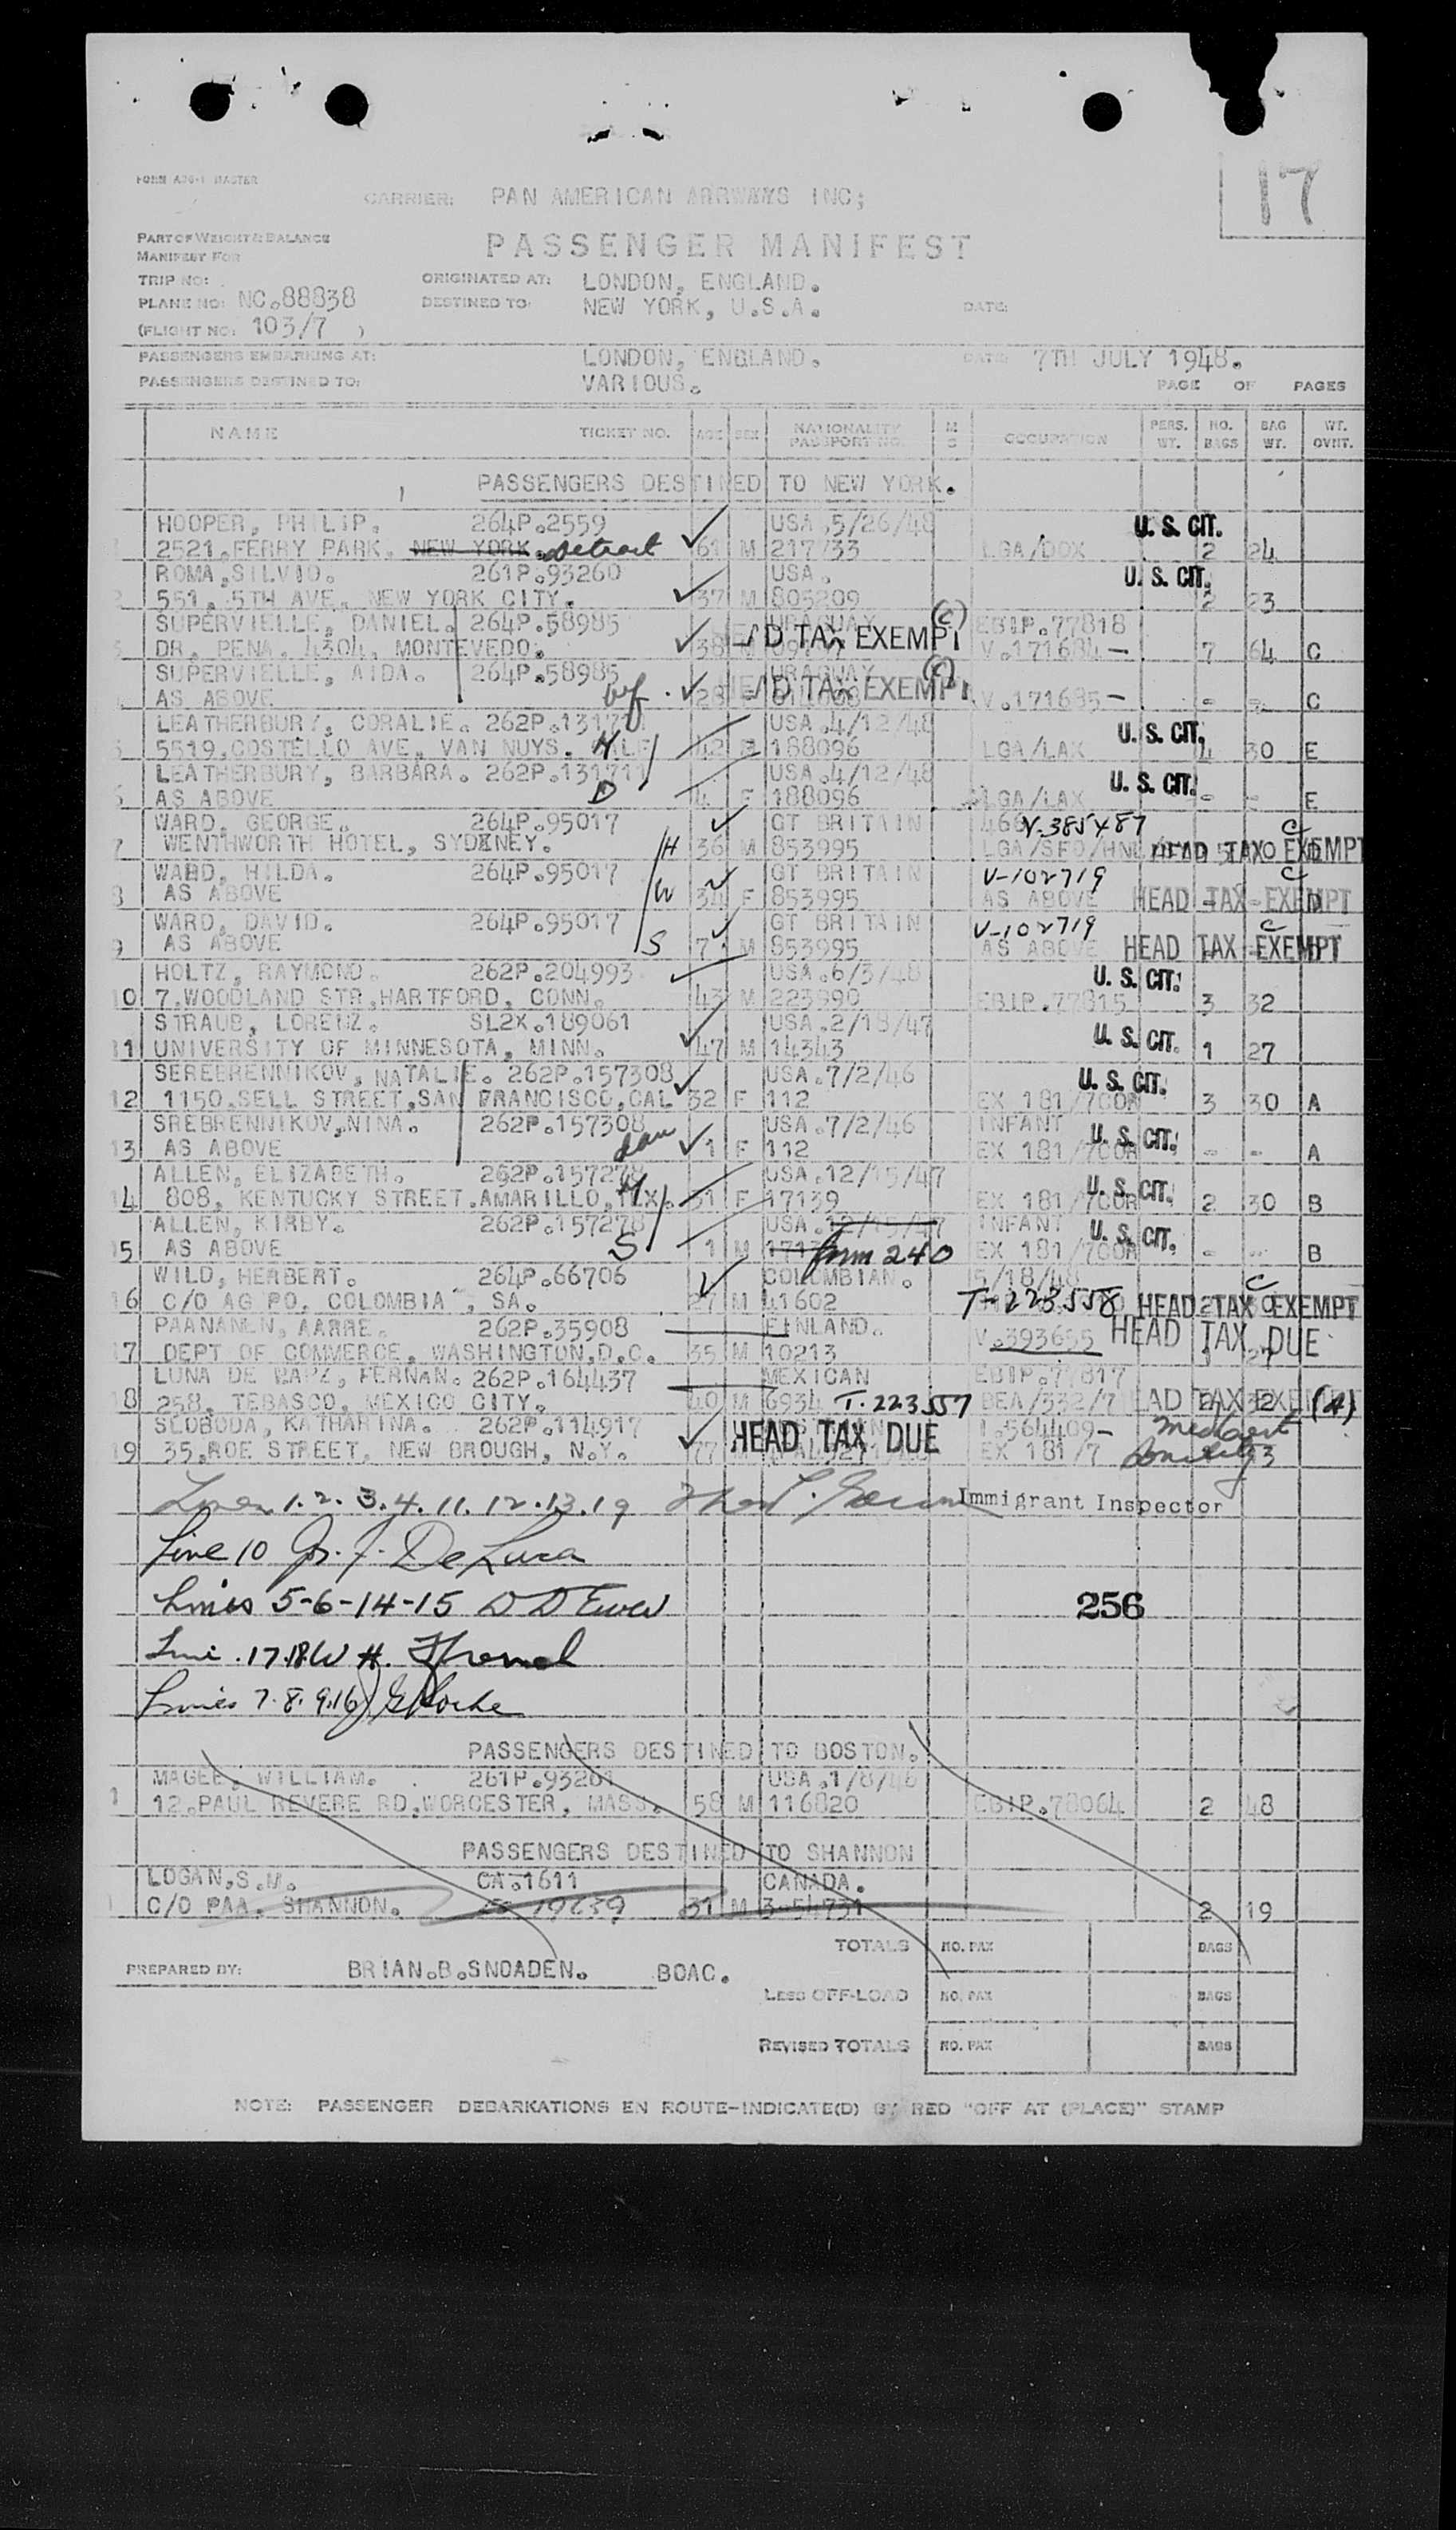 FORM A20-1 MASTER
17
CARRIER: PAN AMERICAN AIRWAYS INC;
PART OF WEIGHT & BALANCE
MANIFEST FOR
PASSENGER MANIFEST
TRIP NO: ORIGINATED AT: LONDON, ENGLAND.
PLANE NO: NC.88838 DESTINED TO: NEW YORK, U.S.A. DATE:
(FLIGHT NO: 103/7 )
PASSENGERS EMBARKING AT: LONDON, ENGLAND. DATE: 7TH JULY 1948.
PASSENGERS DESTINED TO: VARIOUS. PAGE OF PAGES
NAME TICKET NO. AGE SEX NATIONALITY PASSPORT NO. M S OCCUPATION PERS. WT. NO. BAGS BAG WT. WT. OVHT.
PASSENGERS DESTINED TO NEW YORK.
HOOPER, PHILIP. 264P.2559 USA.5/26/48 U.S. CIT.
2521.FERRY PARK. NEW YORK. Detroit 61 M 217733 LGA/DOX 2 24
ROMA,SILVIO. 261P.93260 USA. U.S. CIT.
2 551. 5TH AVE. NEW YORK CITY. 37 M 805209 2 23
SUPERVIELLE, DANIEL. 264P.58985 URAGUAY (C) EBIP.77818
3 DR. PENA. 4304. MONTEVEDO. 38 M D TAX EXEMPT V.171684- 7 64 C
SUPERVIELLE, AIDA. 264P.58985 URAGUAY (C)
AS ABOVE wf. 28 F HEAD TAX EXEMPT V.171685- - - C
LEATHERBURY, CORALIE. 262P.131710 USA.4/12/48 U.S. CIT.
5 5519.COSTELLO AVE. VAN NUYS. CALF 42 F 188096 LGA/LAX 4 30 E
LEATHERBURY, BARBARA. 262P.131711 USA.4/12/48 U.S. CIT.
6 AS ABOVE D 4 F 188096 LGA/LAX - - E
WARD, GEORGE. 264P.95017 GT BRITAIN V-385487 C
7 WENTHWORTH HOTEL, SYDXNEY. H 36 M 853995 LGA/SFO/HNL HEAD TAX EXEMPT
WARD, HILDA. 264P.95017 GT BRITAIN V-102719 C
8 AS ABOVE W 34 F 853995 AS ABOVE HEAD TAX EXEMPT
WARD, DAVID. 264P.95017 GT BRITAIN V-102719 C
9 AS ABOVE S 7 M 853995 AS ABOVE HEAD TAX EXEMPT
HOLTZ, RAYMOND. 262P.204993 USA.6/3/48 U.S. CIT.
10 7.WOODLAND STR.HARTFORD, CONN. 43 M 223990 EBIP.77815 3 32
STRAUB, LORENZ. SL2X.189061 USA.2/18/47 U.S. CIT.
11 UNIVERSITY OF MINNESOTA, MINN. 47 M 14343 1 27
SEREBRENNIKOV, NATALIE. 262P.157308 USA.7/2/46 U.S. CIT.
12 1150.SELL STREET,SAN FRANCISCO,CAL 32 F 112 EX 181/7COR 3 30 A
SREBRENNIKOV,NINA. 262P.157308 USA.7/2/46 INFANT U.S. CIT.
13 AS ABOVE dau 1 F 112 EX 181/7COR - - A
ALLEN, ELIZABETH. 262P.157278 USA.12/15/47 U.S. CIT.
14 808, KENTUCKY STREET.AMARILLO,TEX. 31 F 17139 EX 181/7COR 2 30 B
ALLEN, KIRBY. 262P.157278 USA.12/15/47 INFANT U.S. CIT.
15 AS ABOVE S 1 M form 240 EX 181/7COR - - B
WILD, HERBERT. 264P.66706 COLOMBIAN. 5/18/48 C
16 C/O AG PO. COLOMBIA, SA. 27 M 41602 T-223558 HEAD TAX EXEMPT
PAANANEN, AARRE. 262P.35908 FINLAND. V.393655 HEAD TAX DUE
17 DEPT OF COMMERCE, WASHINGTON,D.C. 35 M 10213
LUNA DE FERNAN. 262P.164437 MEXICAN EBIP.77817
18 258, TEBASCO, MEXICO CITY. 40 M 6934 T.223557 DEA/332/7 HEAD TAX EXEMPT (A)
SLOBODA, KATHARINA. 262P.114917 HEAD TAX DUE I.564409-
19 35.ROE STREET. NEW BROUGH, N.Y. 77 EX 181/7
Lines 1. 2. 3. 4. 11. 12. 13. 19 Immigrant Inspector
Line 10 De Luca
Lines 5-6-14-15
256
Line .17.18 W H. French
Lines 7. 8. 9.16
PASSENGERS DESTINED TO BOSTON.
MAGEE, WILLIAM. 261P.93261 USA.1/8/46
1 12.PAUL REVERE RD.WORCESTER, MASS. 58 M 116820 EBIP.78064 2 48
PASSENGERS DESTINED TO SHANNON
LOGAN,S.M. CA.1611 CANADA.
C/O PAA. SHANNON. 19239 31 M 3-54731 2 19
TOTALS NO. PAX BAGS
PREPARED BY: BRIAN.B.SNOADEN. BOAC.
LESS OFF-LOAD NO. PAX BAGS
REVISED TOTALS NO. PAX BAGS
NOTE: PASSENGER DEBARKATIONS EN ROUTE-INDICATE(D) BY RED "OFF AT (PLACE)" STAMP